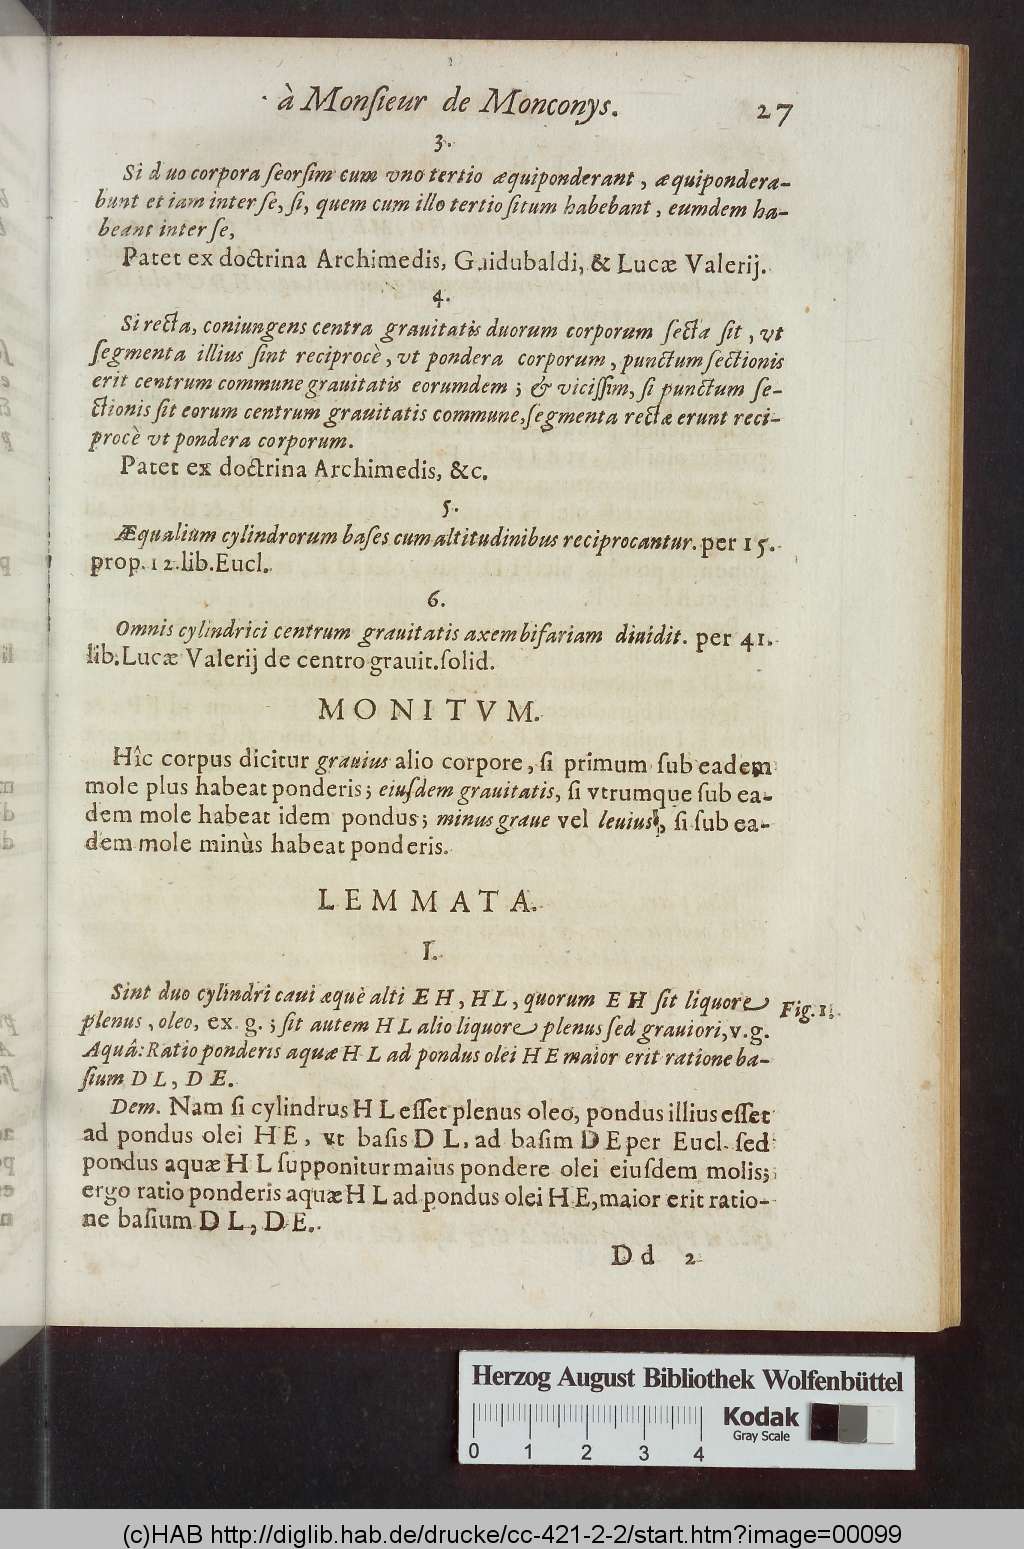 à Monſieur de Monconys. 27
3.
Si duo corpora ſeorſim cum vno tertio æquiponderant, æquipondera-
bunt etiam inter ſe, ſi, quem cum illo tertio ſitum habebant, eumdem ha-
beant inter ſe,
Patet ex doctrina Archimedis, Guidubaldi, & Lucæ Valerij.
4.
Si recta, coniungens centra grauitatis duorum corporum ſecta ſit, vt
ſegmenta illius ſint reciprocè, vt pondera corporum, punctum ſectionis
erit centrum commune grauitatis eorumdem; & viciſſim, ſi punctum ſe-
ctionis ſit eorum centrum grauitatis commune, ſegmenta rectæ erunt reci-
procè vt pondera corporum.
Patet ex doctrina Archimedis, &c.
5.
Æqualium cylindrorum baſes cum altitudinibus reciprocantur. per 15.
prop. 12. lib. Eucl.
6.
Omnis cylindrici centrum grauitatis axem bifariam diuidit. per 41.
lib. Lucæ Valerij de centro grauit. ſolid.
MONITVM.
Hîc corpus dicitur grauius alio corpore, ſi primum ſub eadem
mole plus habeat ponderis; eiuſdem grauitatis, ſi vtrumque ſub ea-
dem mole habeat idem pondus; minus graue vel leuius, ſi ſub ea-
dem mole minùs habeat ponderis.
LEMMATA.
I.
Sint duo cylindri caui æquè alti EH, HL, quorum EH ſit liquore Fig. 1.
plenus, oleo, ex. g.; ſit autem HL alio liquore plenus ſed grauiori, v.g.
Aquâ: Ratio ponderis aquæ HL ad pondus olei HE maior erit ratione ba-
ſium DL, DE.
Dem. Nam ſi cylindrus HL eſſet plenus oleo, pondus illius eſſet
ad pondus olei HE, vt baſis DL, ad baſim DE per Eucl. ſed
pondus aquæ HL ſupponitur maius pondere olei eiuſdem molis;
ergo ratio ponderis aquæ HL ad pondus olei HE, maior erit ratio-
ne baſium DL, DE.
Dd 2
Herzog August Bibliothek Wolfenbüttel
Kodak
Gray Scale
0 1 2 3 4
(c)HAB http://diglib.hab.de/drucke/cc-421-2-2/start.htm?image=00099